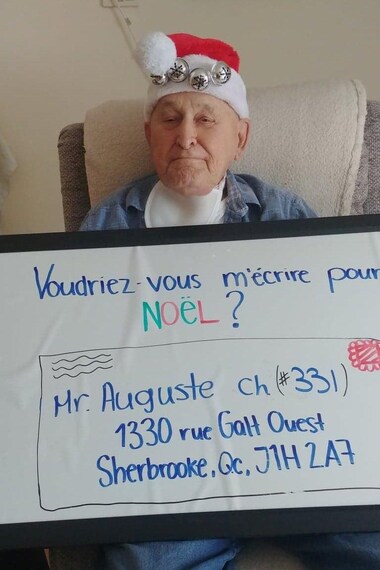 Voudriez-vous m'écrire pour
NOËL?
Mr. Auguste ch (#331)
1330 rue Galt Ouest
Sherbrooke, Qc, J1H 2A7